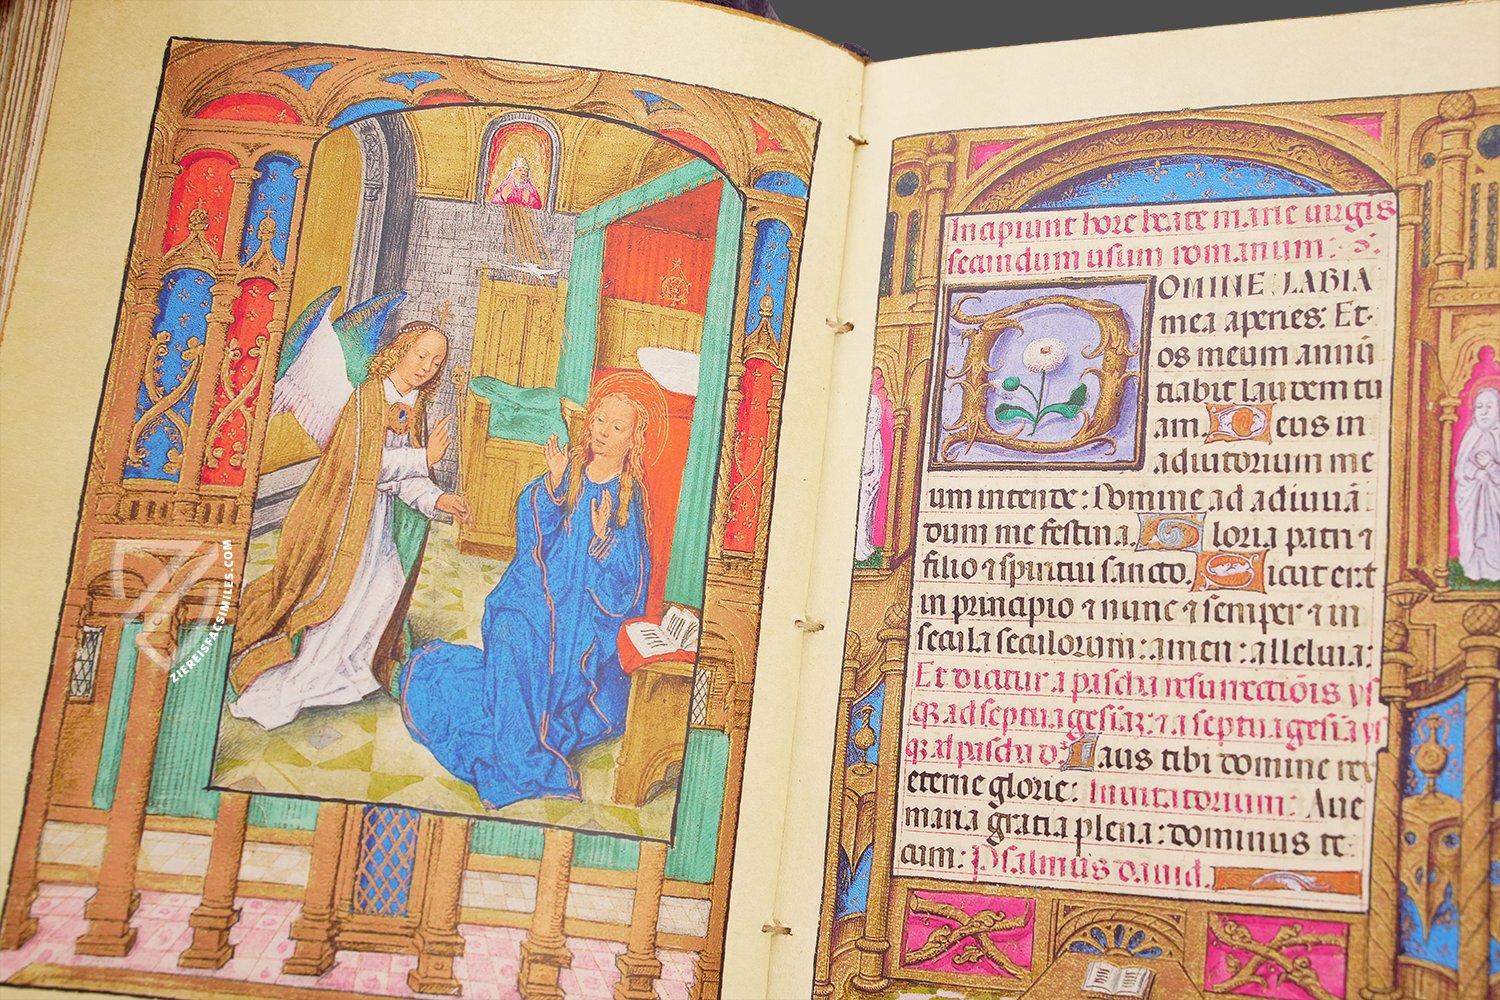 ZIEREISFACSIMILES.COM
Incipiunt hore beate marie uirgis
secundum usum romanum:
DOMINE LABIA
mea aperies: Et
os meum annū
tiabit laudem tu
am. Deus in
adiutorium me
um intende: Domine ad adiuuā
dum me festina. Gloria patri ⁊
filio ⁊ spiritui sancto. Sicut erat
in principio ⁊ nunc ⁊ semper ⁊ in
secula seculorum: amen: alleluia:
Et dicitur a pascha resurrectiōis
ad septuagesiaȝ: ⁊ a septuagesia
al pascha Laus tibi domine rex
eterne glorie: Inuitatorium: Aue
maria gratia plena: dominus te
cum: Psalmus dauid.